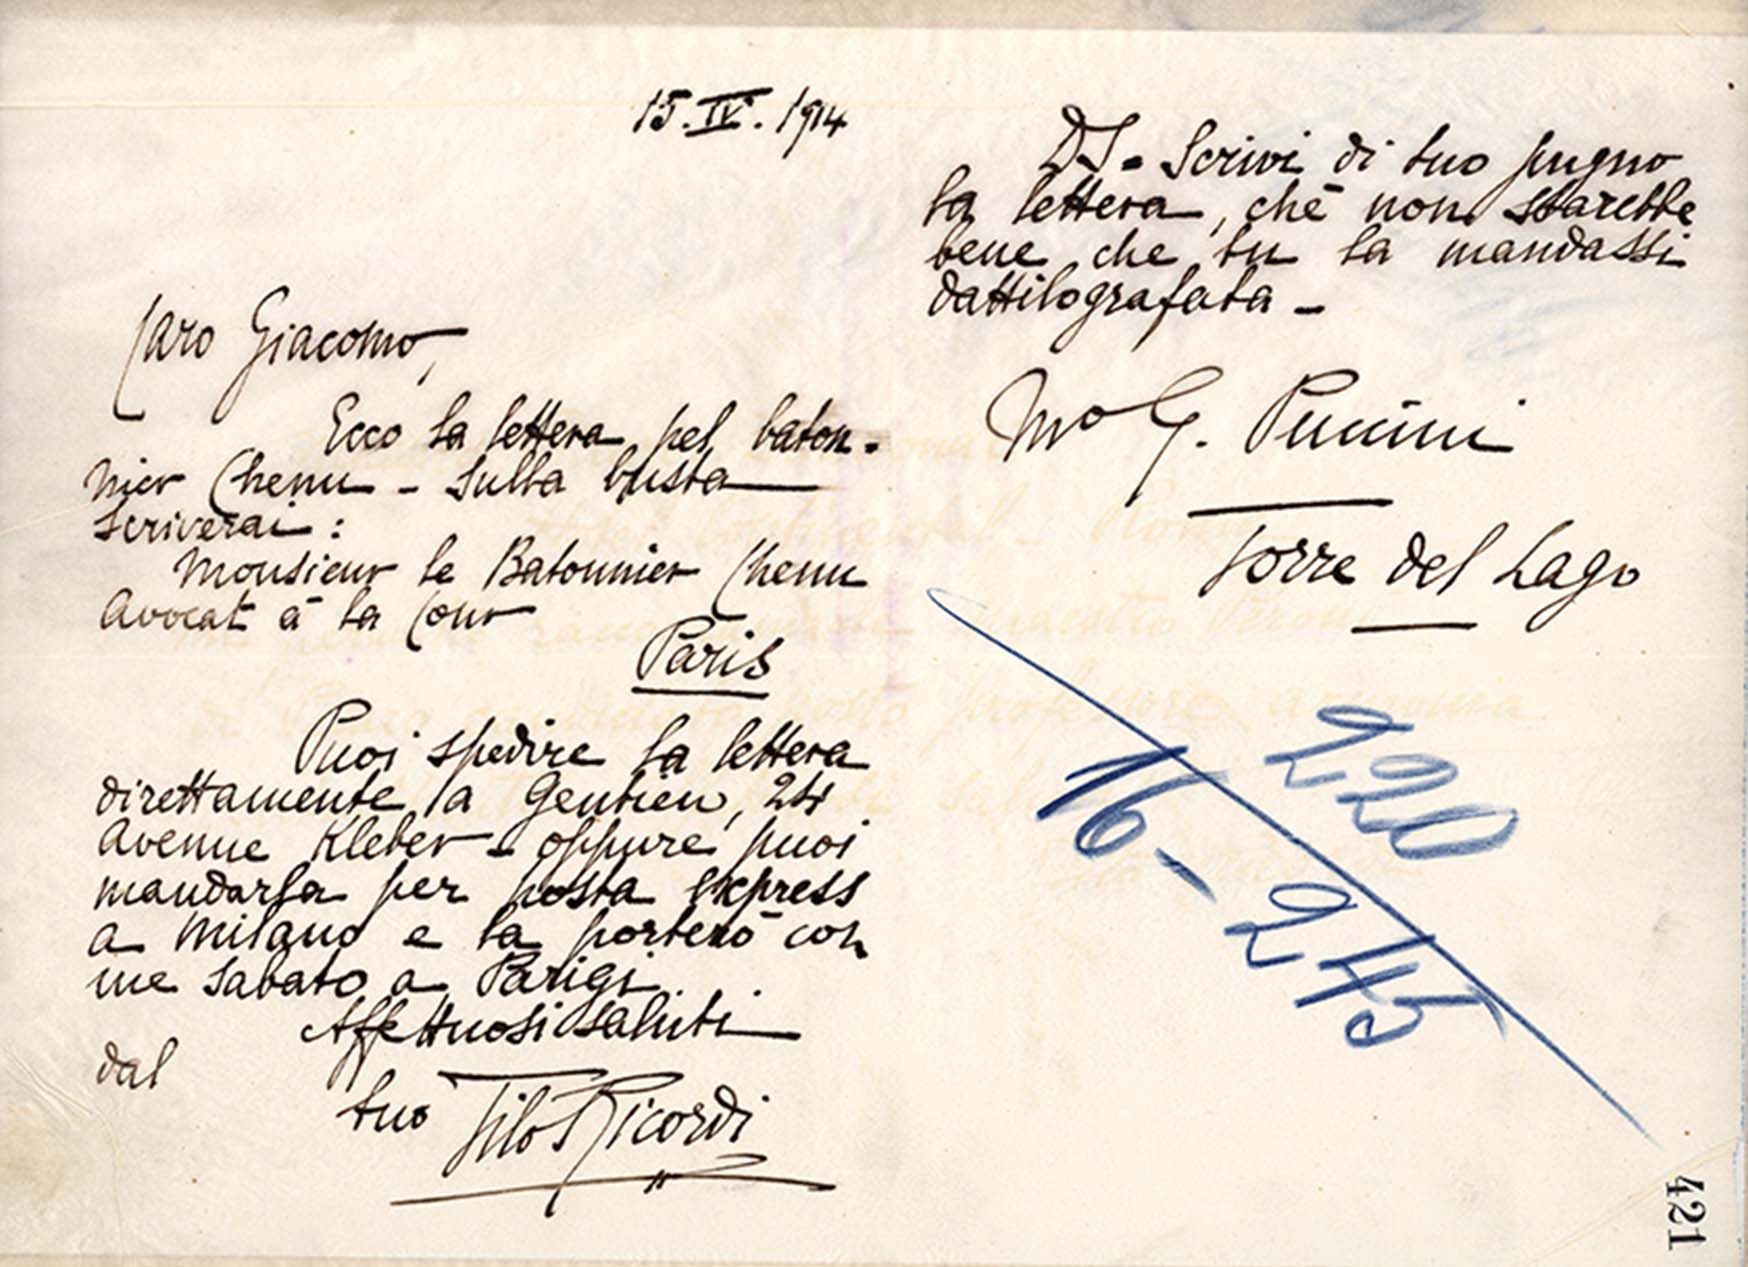 15.IV.1914
Caro Giacomo,
Ecco la lettera pel baton-
nier Chenu - sulla busta
scriverai:
Monsieur le Batonnier Chenu
Avocat à la Cour
Paris
Puoi spedire la lettera
direttamente a Gentien, 24
Avenue Kleber - oppure puoi
mandarla per posta express
a Milano e la porterò con
me sabato a Parigi.
Affettuosi saluti
dal
tuo Tito Ricordi
DS. Scrivi di tuo pugno
la lettera, chè non starebbe
bene che tu la mandassi
dattilografata -
Mo G. Puccini
Torre del Lago
220
16-245
421